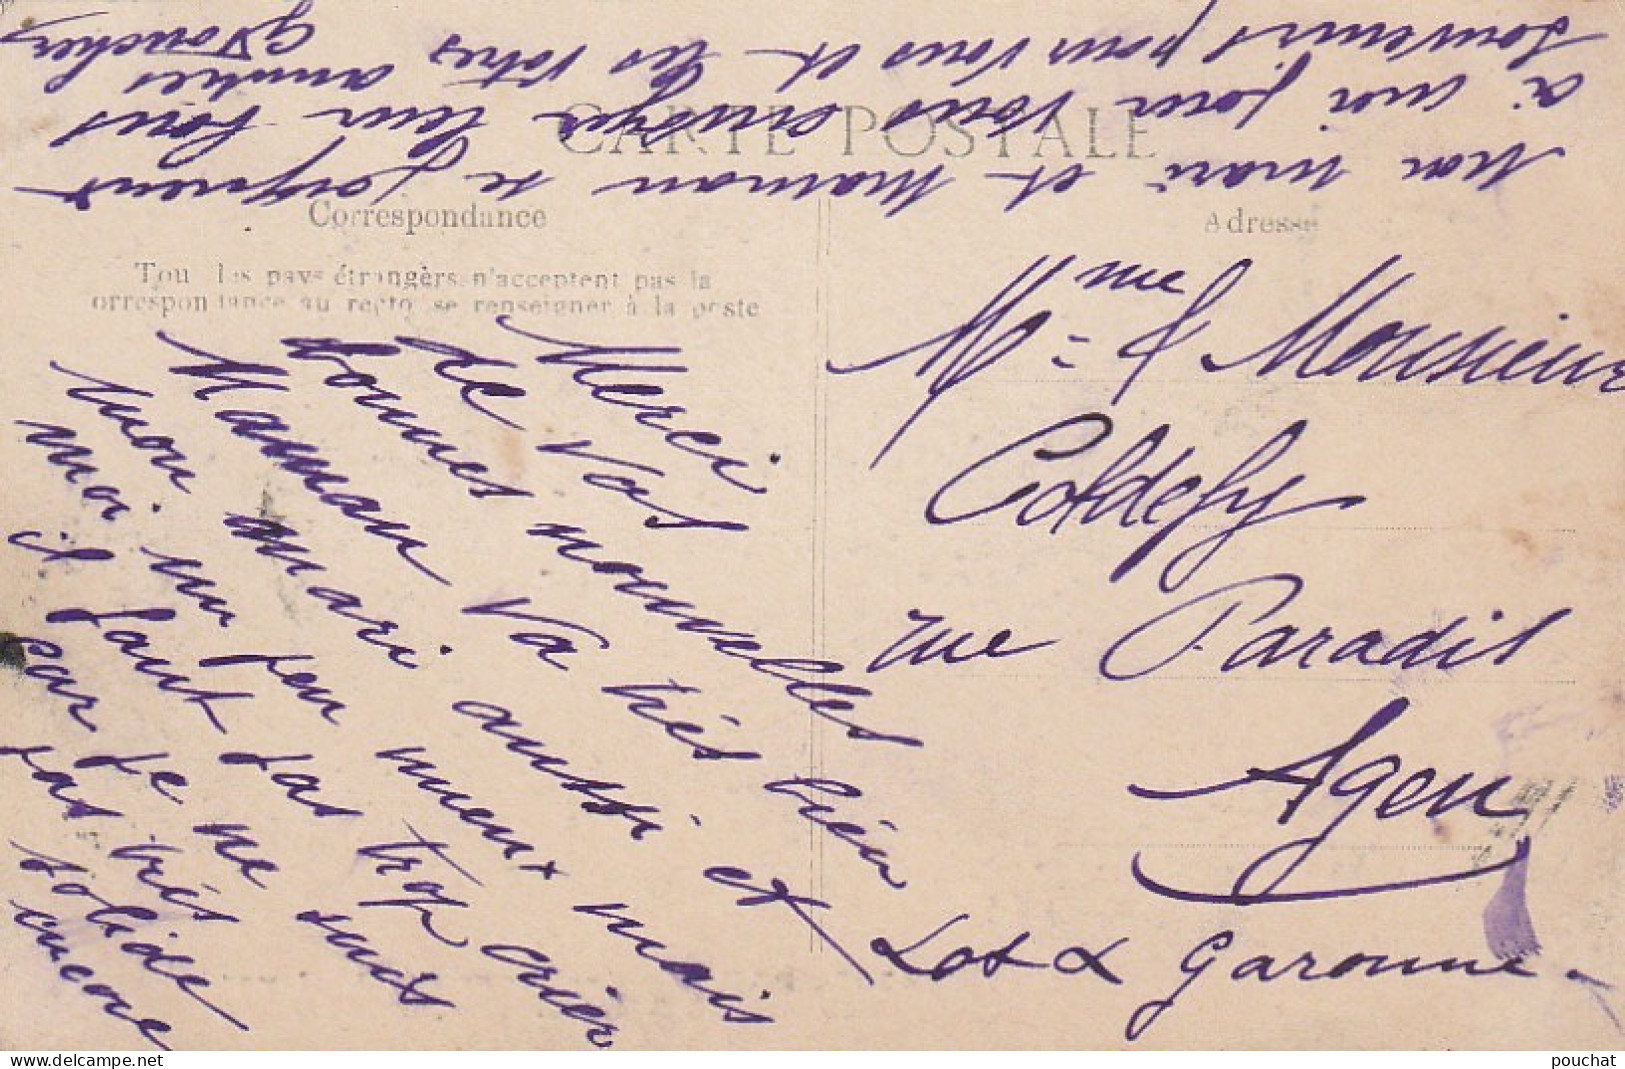 CARTE POSTALE
Correspondance
Adresse
Tou les pays étrangers n'acceptent pas la
orrespondance au recto se renseigner à la poste
Merci
de vos
bonnes nouvelles
Maman va très bien
mon mari aussi et
moi un peu mieux mais
il faut pas trop crier
car je ne suis
pas très
solide
encore
Mon mari et Maman se joignent
à moi pour vous envoyer leur bons
souvenirs pour vous et les votres
amitiés
Mme & Monsieur
Coldefy
rue Paradis
Agen
Lot & Garonne
www.delcampe.net
pouchat